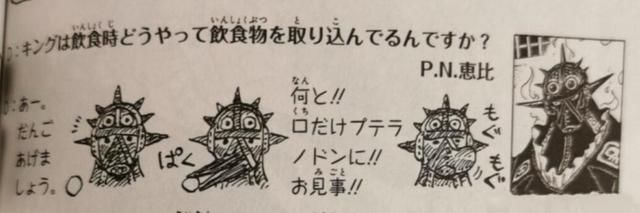 D：キングは飲食時どうやって飲食物を取り込んでるんですか？
P.N.恵比
O：あー。
だんご
あげま
しょう。
ぱく
何と!!
口だけプテラ
ノドンに!!
お見事!!
もぐ
もぐ